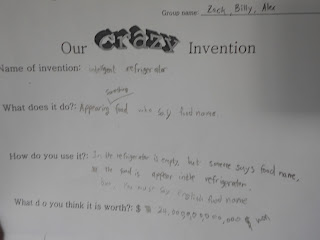 Group name: Zack, Billy, Alex
Our Crazy Invention
Name of invention: intelligent refrigerator
Something
What does it do?: Appearing food who say food name.
How do you use it?: In the refrigerator is empty, but someone says food name,
the food is appear in the refrigerator.
you must say English food name
What do you think it is worth?: $